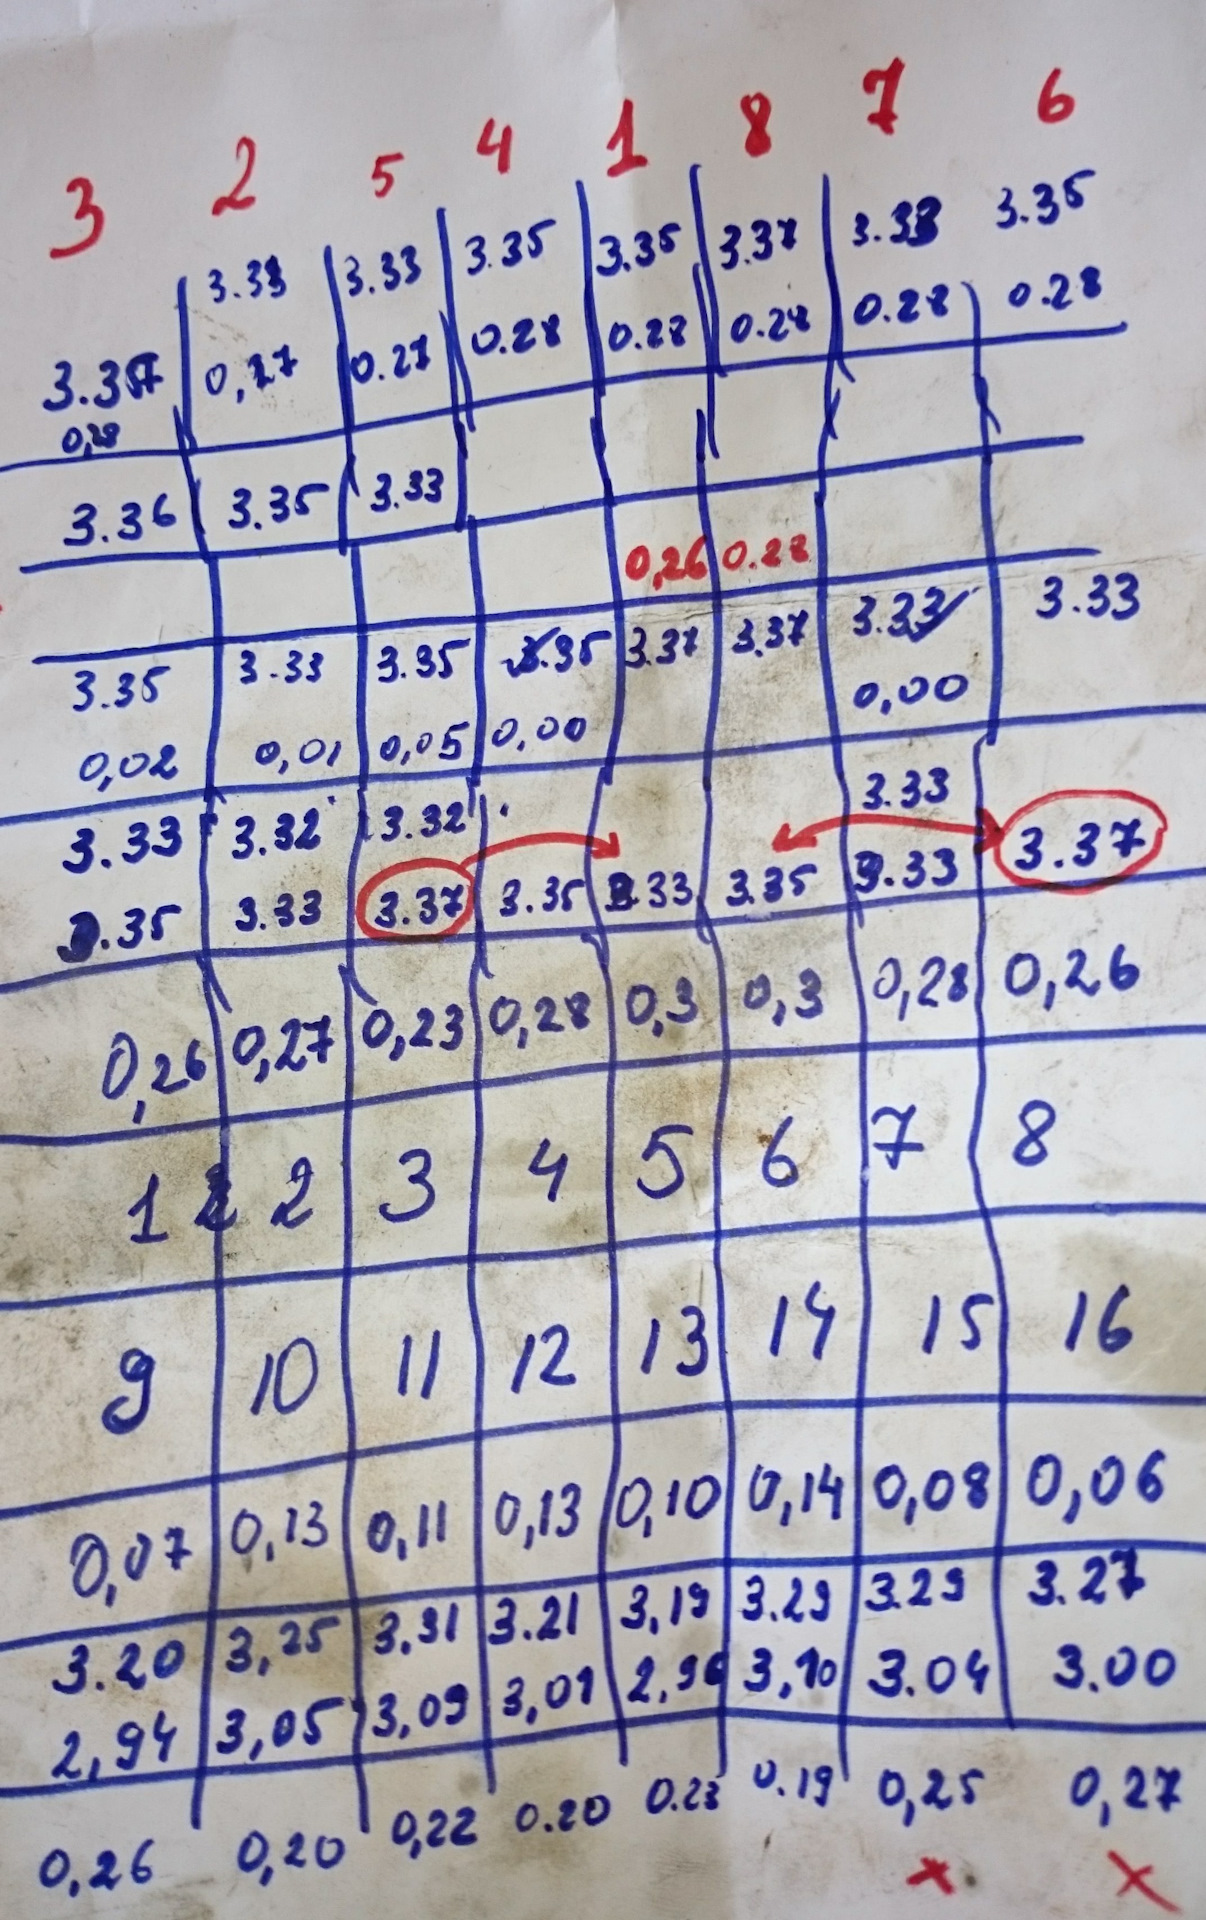 3 2 5 4 1 8 7 6
3.33 3.33 3.35 3.35 3.37 3.33 3.35
3.37 0,27 0.27 0.28 0.28 0.28 0.28 0.28
0,28
3.36 3.35 3.33
0,26 0.28
3.35 3.33 3.35 3.35 3.37 3.37 3.33 3.33
0,02 0,01 0,05 0,00 0,00
3.33 3.32 3.32 3.33
3.35 3.33 3.37 3.35 3.33 3.35 3.33 3.37
0,26 0,27 0,23 0,28 0,3 0,3 0,28 0,26
1 2 2 3 4 5 6 7 8
9 10 11 12 13 14 15 16
0,07 0,13 0,11 0,13 0,10 0,14 0,08 0,06
3.20 3,25 3,31 3.21 3,19 3.29 3.29 3.27
2,94 3,05 3,09 3,01 2,96 3,10 3.04 3.00
0,26 0,20 0,22 0.20 0.23 0.19 0,25 0,27
x x